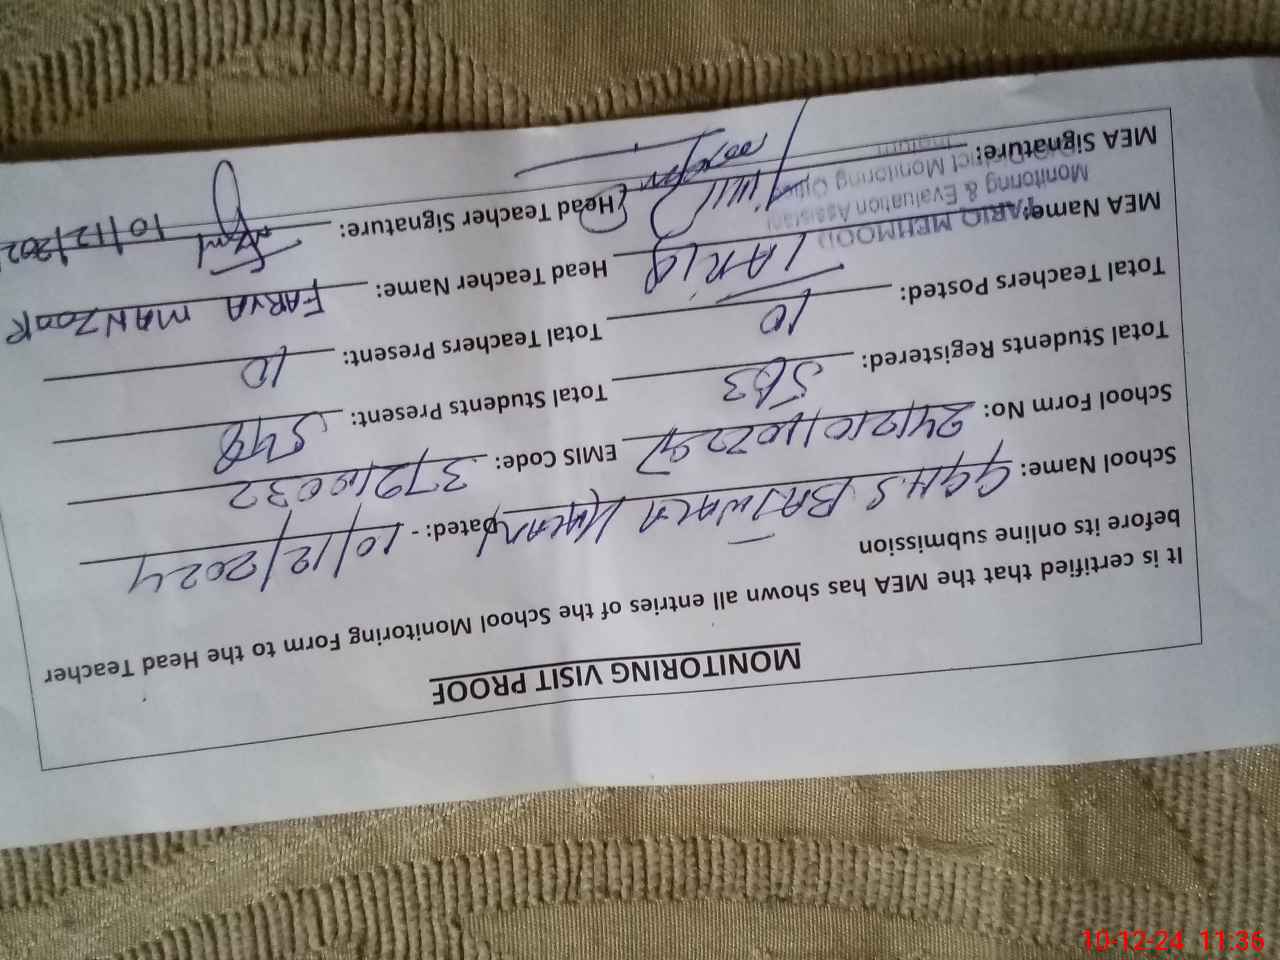 MONITORING VISIT PROOF
It is certified that the MEA has shown all entries of the School Monitoring Form to the Head Teacher
before its online submission
School Name: G.G.H.S BAJWALA Dated: - 10/12/2024
School Form No: EMIS Code: 37210032
Total Students Registered: 563 Total Students Present: 548
Total Teachers Posted: 10 Total Teachers Present: 10
MEA Name: TARIQ Head Teacher Name: FARVA MANZOOR
TARIQ MEHMOOD
Monitoring & Evaluation Assistant
District Monitoring Office
MEA Signature: Head Teacher Signature: 10/12/202
10-12-24 11:36